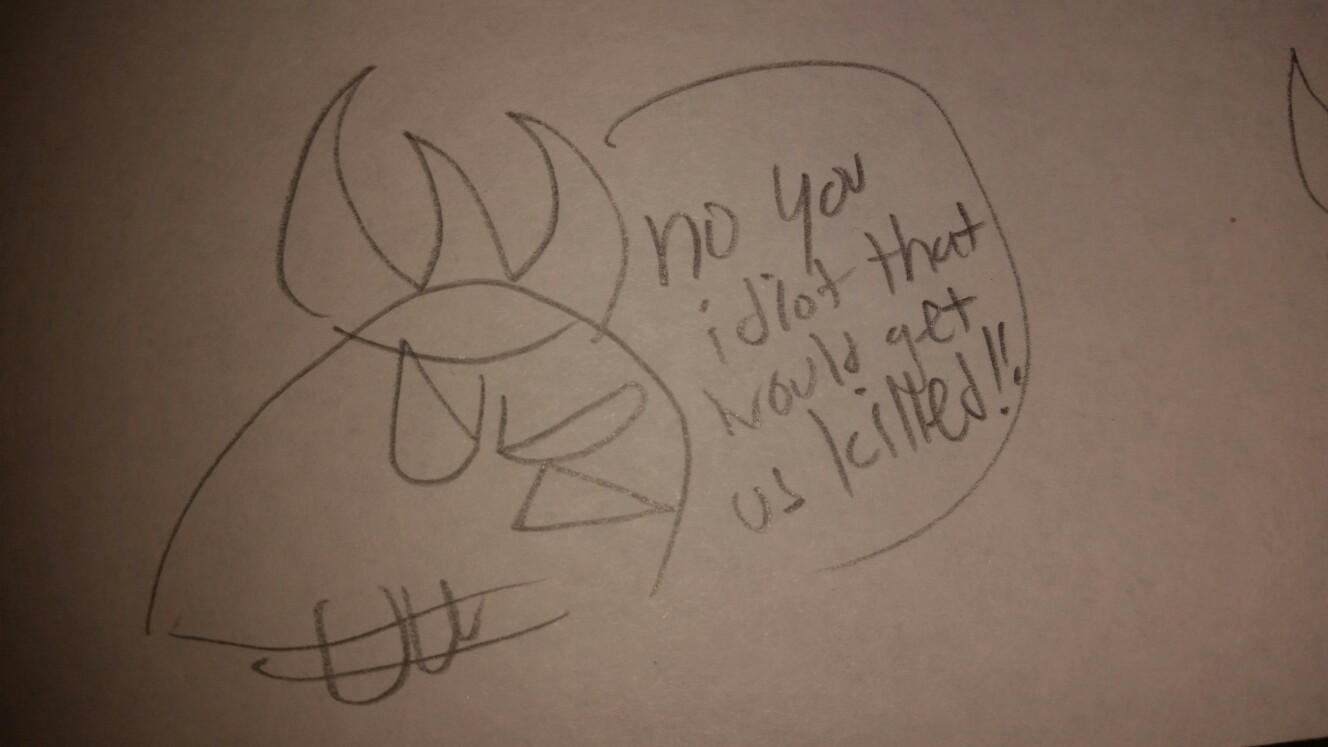 no you
idiot that
would get
us killed!!